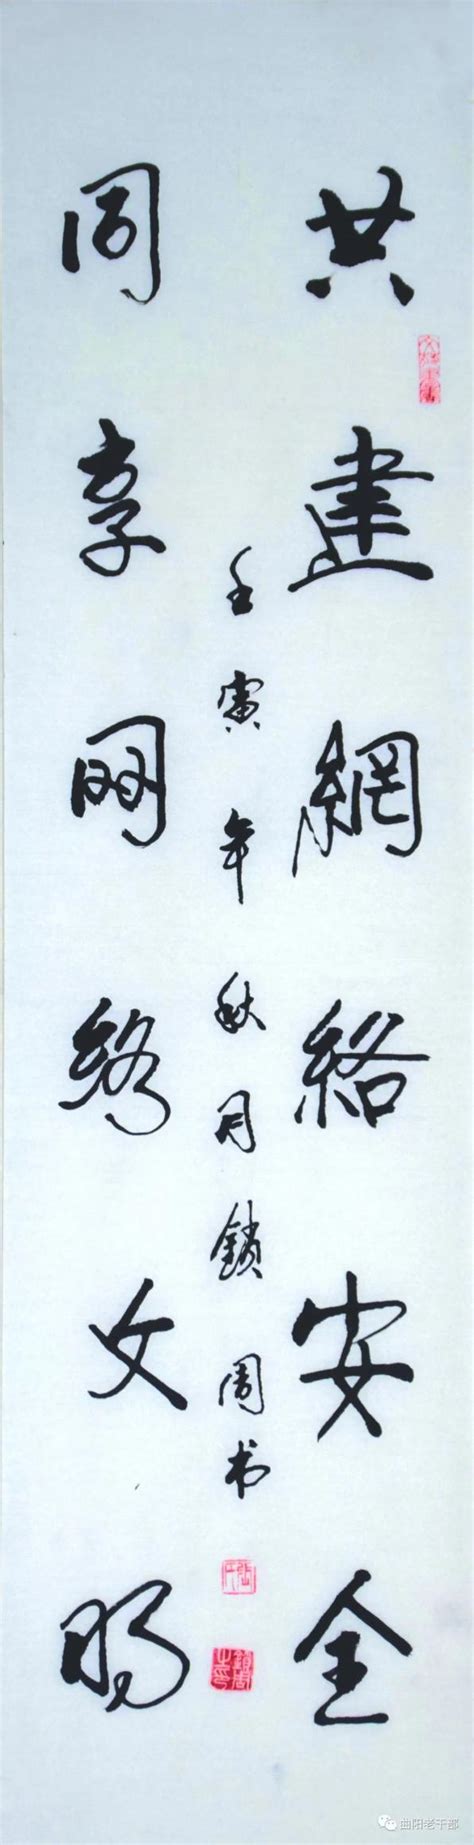 共建網絡安全
壬寅年秋月鎖周书
同享网络文明
曲阳老干部